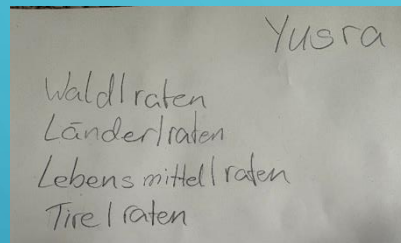 Yusra
Wald|raten
Länder|raten
Lebensmittel|raten
Tire|raten